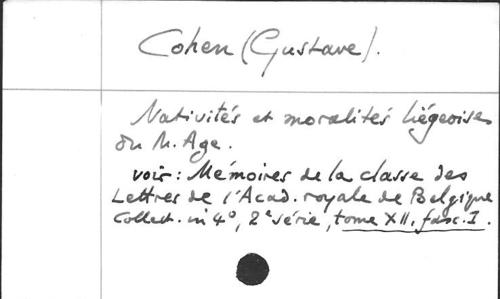 Cohen (Gustave).
Nativités et moralités liégeoises
du M. Age.
voir : Mémoires de la classe des
Lettres de l'Acad. royale de Belgique
Collect. in 4°, 2e série, tome XII, fasc. I.